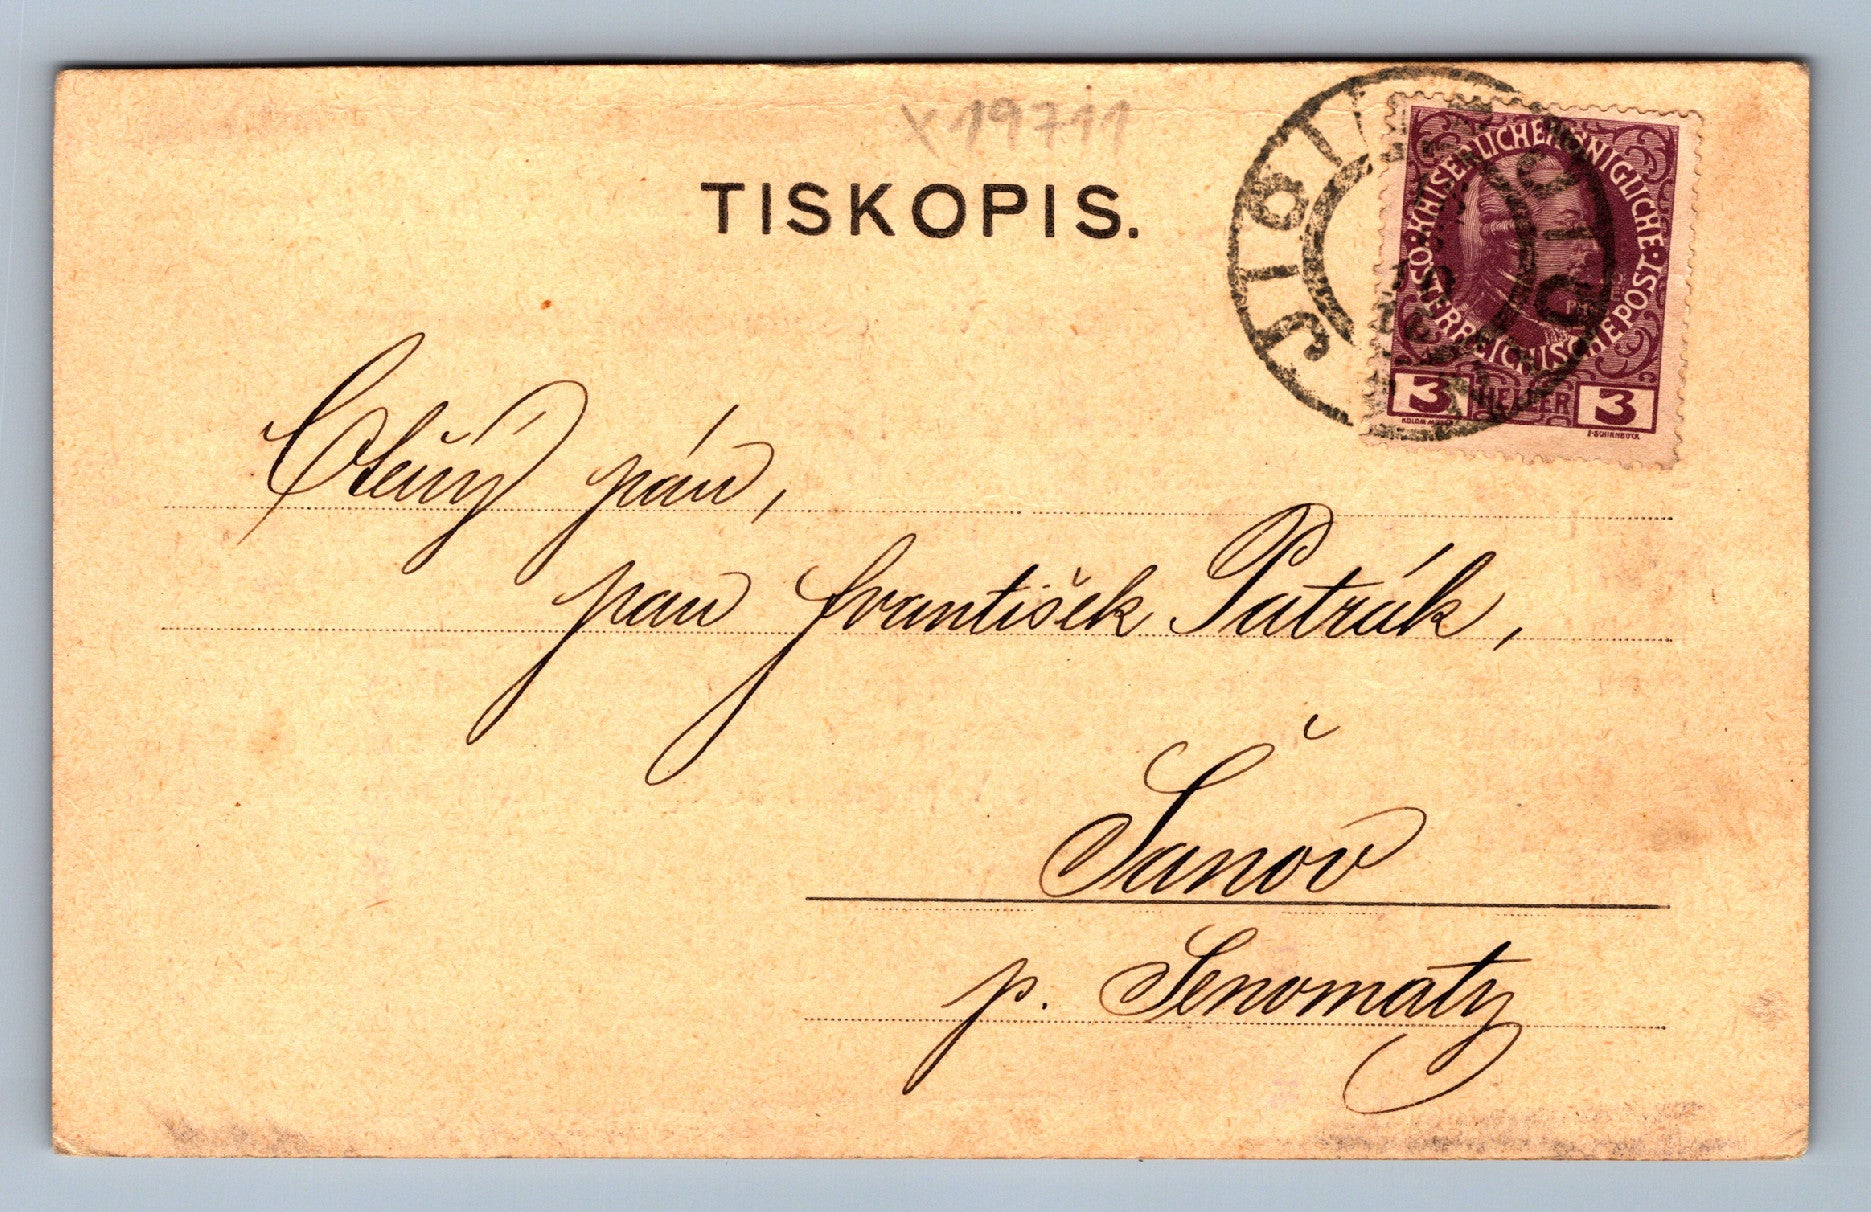 X 19711
TISKOPIS.
KAISERLICHE KÖNIGLICHE
ÖSTERREICHISCHE POST
3 HELLER 3
Ctěný pán,
pan František Patrák,
Šanov
p. Senomaty